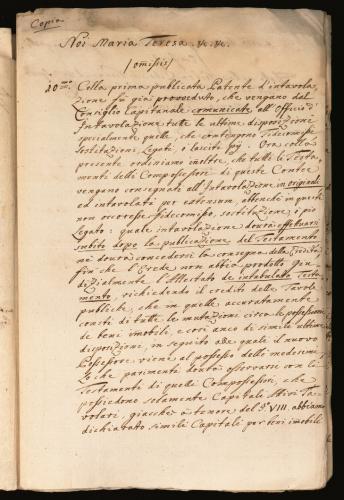 Copia
Noi Maria Teresa &c. &c.
/omissis/
10mo Colla prima publicata Patente d'intavola,
zione fù già proveduto, che vengano dal
Consiglio Capitanale comunicate all'Officio d'
Intavolazione tutte le ultime disposizioni
specialmente quelle, che contengono fideicommissi
sostituzioni, Legati, o lasciti pij. Ora colla
presente ordiniamo inoltre, che tutti li Testa,
menti delle Compossessori di queste Contee
vengano consegnati all'Intavolazione in originale
ed intavolati per extensum, abbenchè in queste
non occoresse fideicomisso, sostituzione, o pio
Legato: quale intavolazione dovrà effettuarsi
subito dopo la publicazione del Testamento
nè dovrà concedersi la consegna della Eredità
fin che l'Erede non abbia prodotto Giu,
dizialmente l'Attestato de intabulato Testa,
mento, richiedendo il credito delle Tavole
publiche, che in quelle accuratamente
consti di tutte le mutazioni circa le possessioni
de beni imobili, e così anco di simili ultime
disposizioni, in seguito alle quali il nuovo
Possessore viene al possesso delle medesime
Lo che parimente dovrà osservarsi con li
Testamenti di quelli Compossessori, che
possiedono solamente Capitali Attivi Ta,
volari, giacchè a tenore del §º VIII. abbiamo
dichiarato simili Capitali per beni imobili